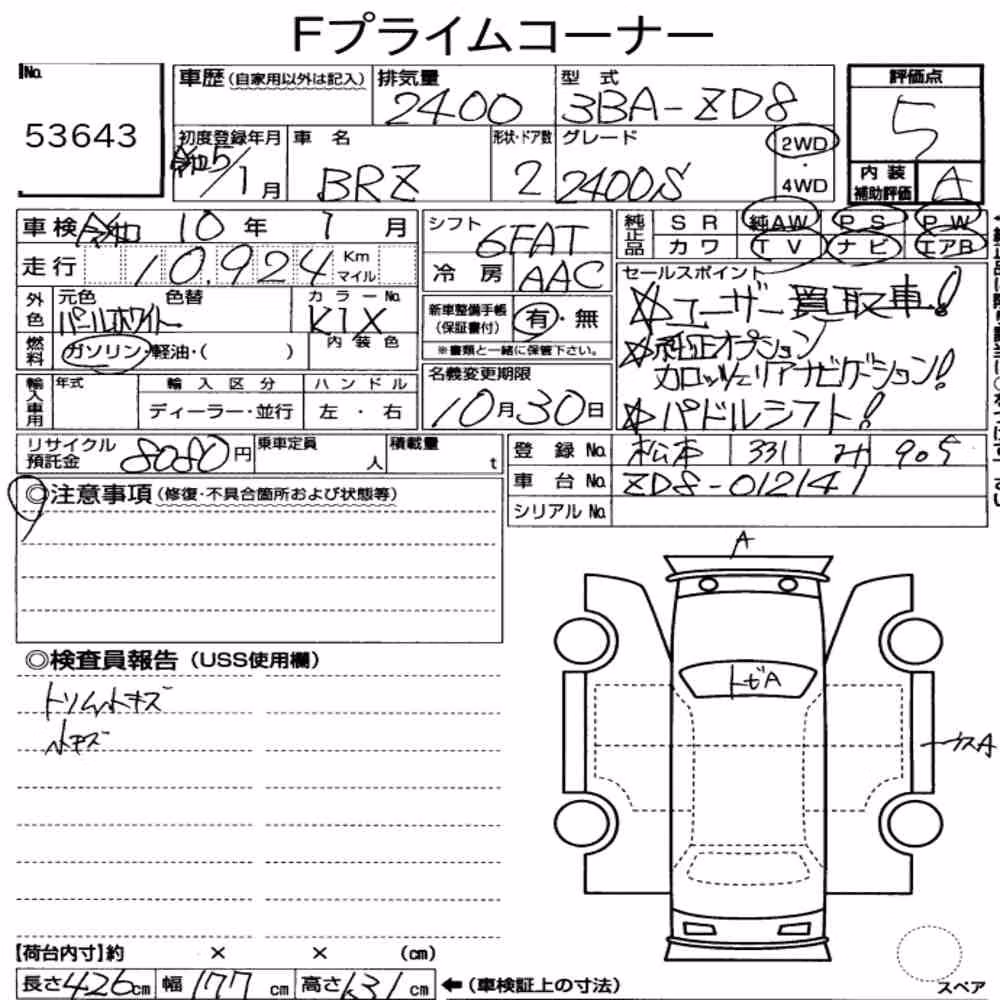 Fプライムコーナー
No.
53643
車歴(自家用以外は記入)
排気量
2400
型式
3BA-ZD8
評価点
5
初度登録年月
令和5/1月
車名
BRZ
形状・ドア数
2
グレード
2400S
2WD
4WD
内装
補助評価
A
車検 令和 10年 1月
シフト
6FAT
純正品
SR 純AW PS PW
カワ TV ナビ エアB
走行 10,924 Km
マイル
冷房 AAC
セールスポイント
☆ユーザー買取車!
☆純正オプション
カロッツェリアナビゲーション!
☆パドルシフト!
外色
元色 色替
パールホワイト
カラーNo.
K1X
内装色
新車整備手帳
(保証書付)
有・無
※書類と一緒に保管下さい。
燃料
ガソリン・軽油・( )
名義変更期限
10月30日
輸入車用
年式
輸入区分
ハンドル
ディーラー・並行
左・右
リサイクル
預託金
8080円
乗車定員
人
積載量
t
登録No. 松本 331 み 905
車台No. ZD8-012141
シリアルNo.
◎注意事項(修復・不具合箇所および状態等)
A
◎検査員報告(USS使用欄)
トリム小キズ
小キズ
トビA
A
【荷台内寸】約 × × (cm)
長さ426cm 幅177cm 高さ131cm ←(車検証上の寸法)
スペア